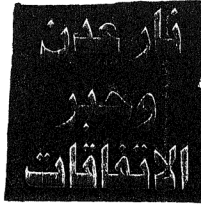 نار عدن
وحبر
الاتفاقات